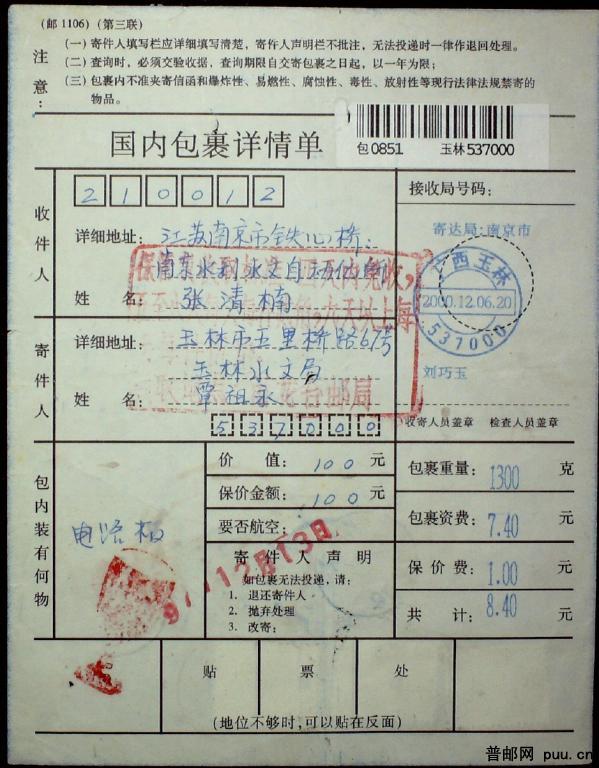 (邮1106)(第三联)
注意:
(一)寄件人填写栏应详细填写清楚,寄件人声明栏不批注,无法投递时一律作退回处理。
(二)查询时,必须交验收据,查询期限自交寄包裹之日起,以一年为限;
(三)包裹内不准夹寄信函和爆炸性、易燃性、腐蚀性、毒性、放射性等现行法律法规禁寄的
物品。
国内包裹详情单
包0851 玉林537000
210012
接收局号码:
收件人
详细地址: 江苏南京市铁心桥
寄达局:南京市
南京水利水文自动化
姓名: 张清楠
广西玉林
2000.12.06.20
537000
寄件人
详细地址: 玉林市五里桥路67号
玉林水文局
刘巧玉
姓名: 覃祖永
邮局
537000
收寄人员盖章 检查人员盖章
包内装有何物
电路板
价值: 100 元
保价金额: 100 元
要否航空:
包裹重量: 1300 克
包裹资费: 7.40 元
保价费: 1.00 元
共计: 8.40 元
12月13日
寄件人声明
如包裹无法投递,请:
1. 退还寄件人
2. 抛弃处理
3. 改寄:
贴 票 处
(地位不够时,可以贴在反面)
普邮网 puu.cn